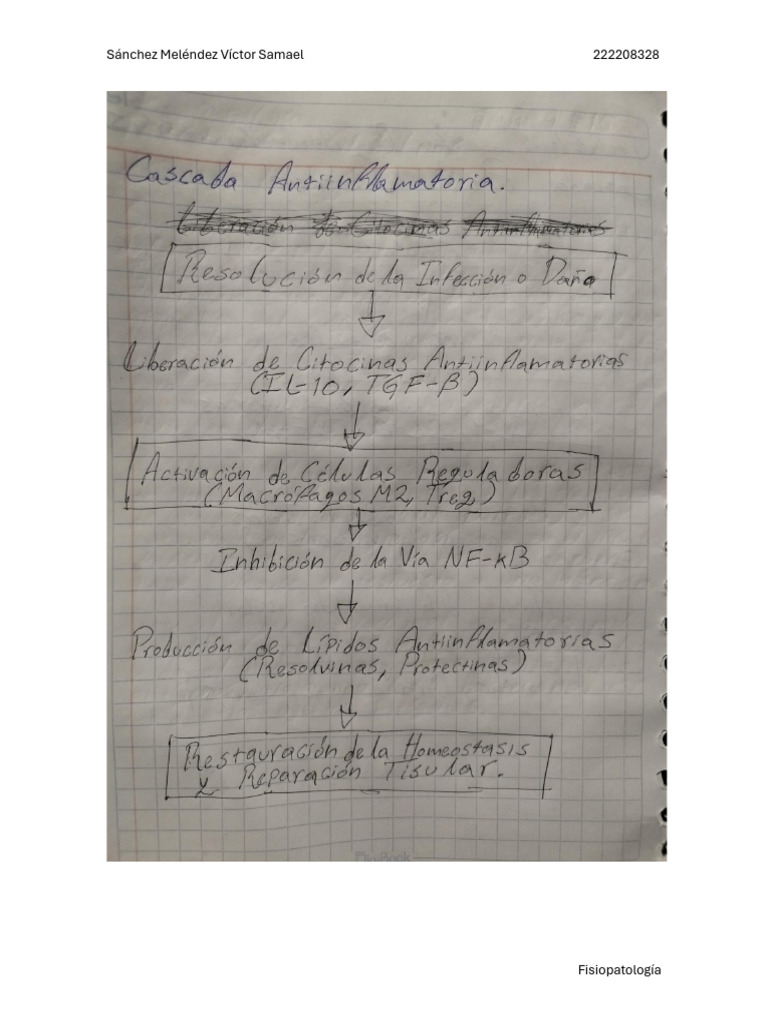 Sánchez Meléndez Víctor Samael 222208328
Cascada Antiinflamatoria.
Liberación de Citocinas Antiinflamatorias
Resolución de la Infección o Daño
Liberación de Citocinas Antiinflamatorias
(IL-10, TGF-β)
Activación de Células Reguladoras
(Macrófagos M2, Treg)
Inhibición de la Vía NF-κB
Producción de Lípidos Antiinflamatorias
(Resolvinas, Protectinas)
Restauración de la Homeostasis
y Reparación Tisular.
Fisiopatología